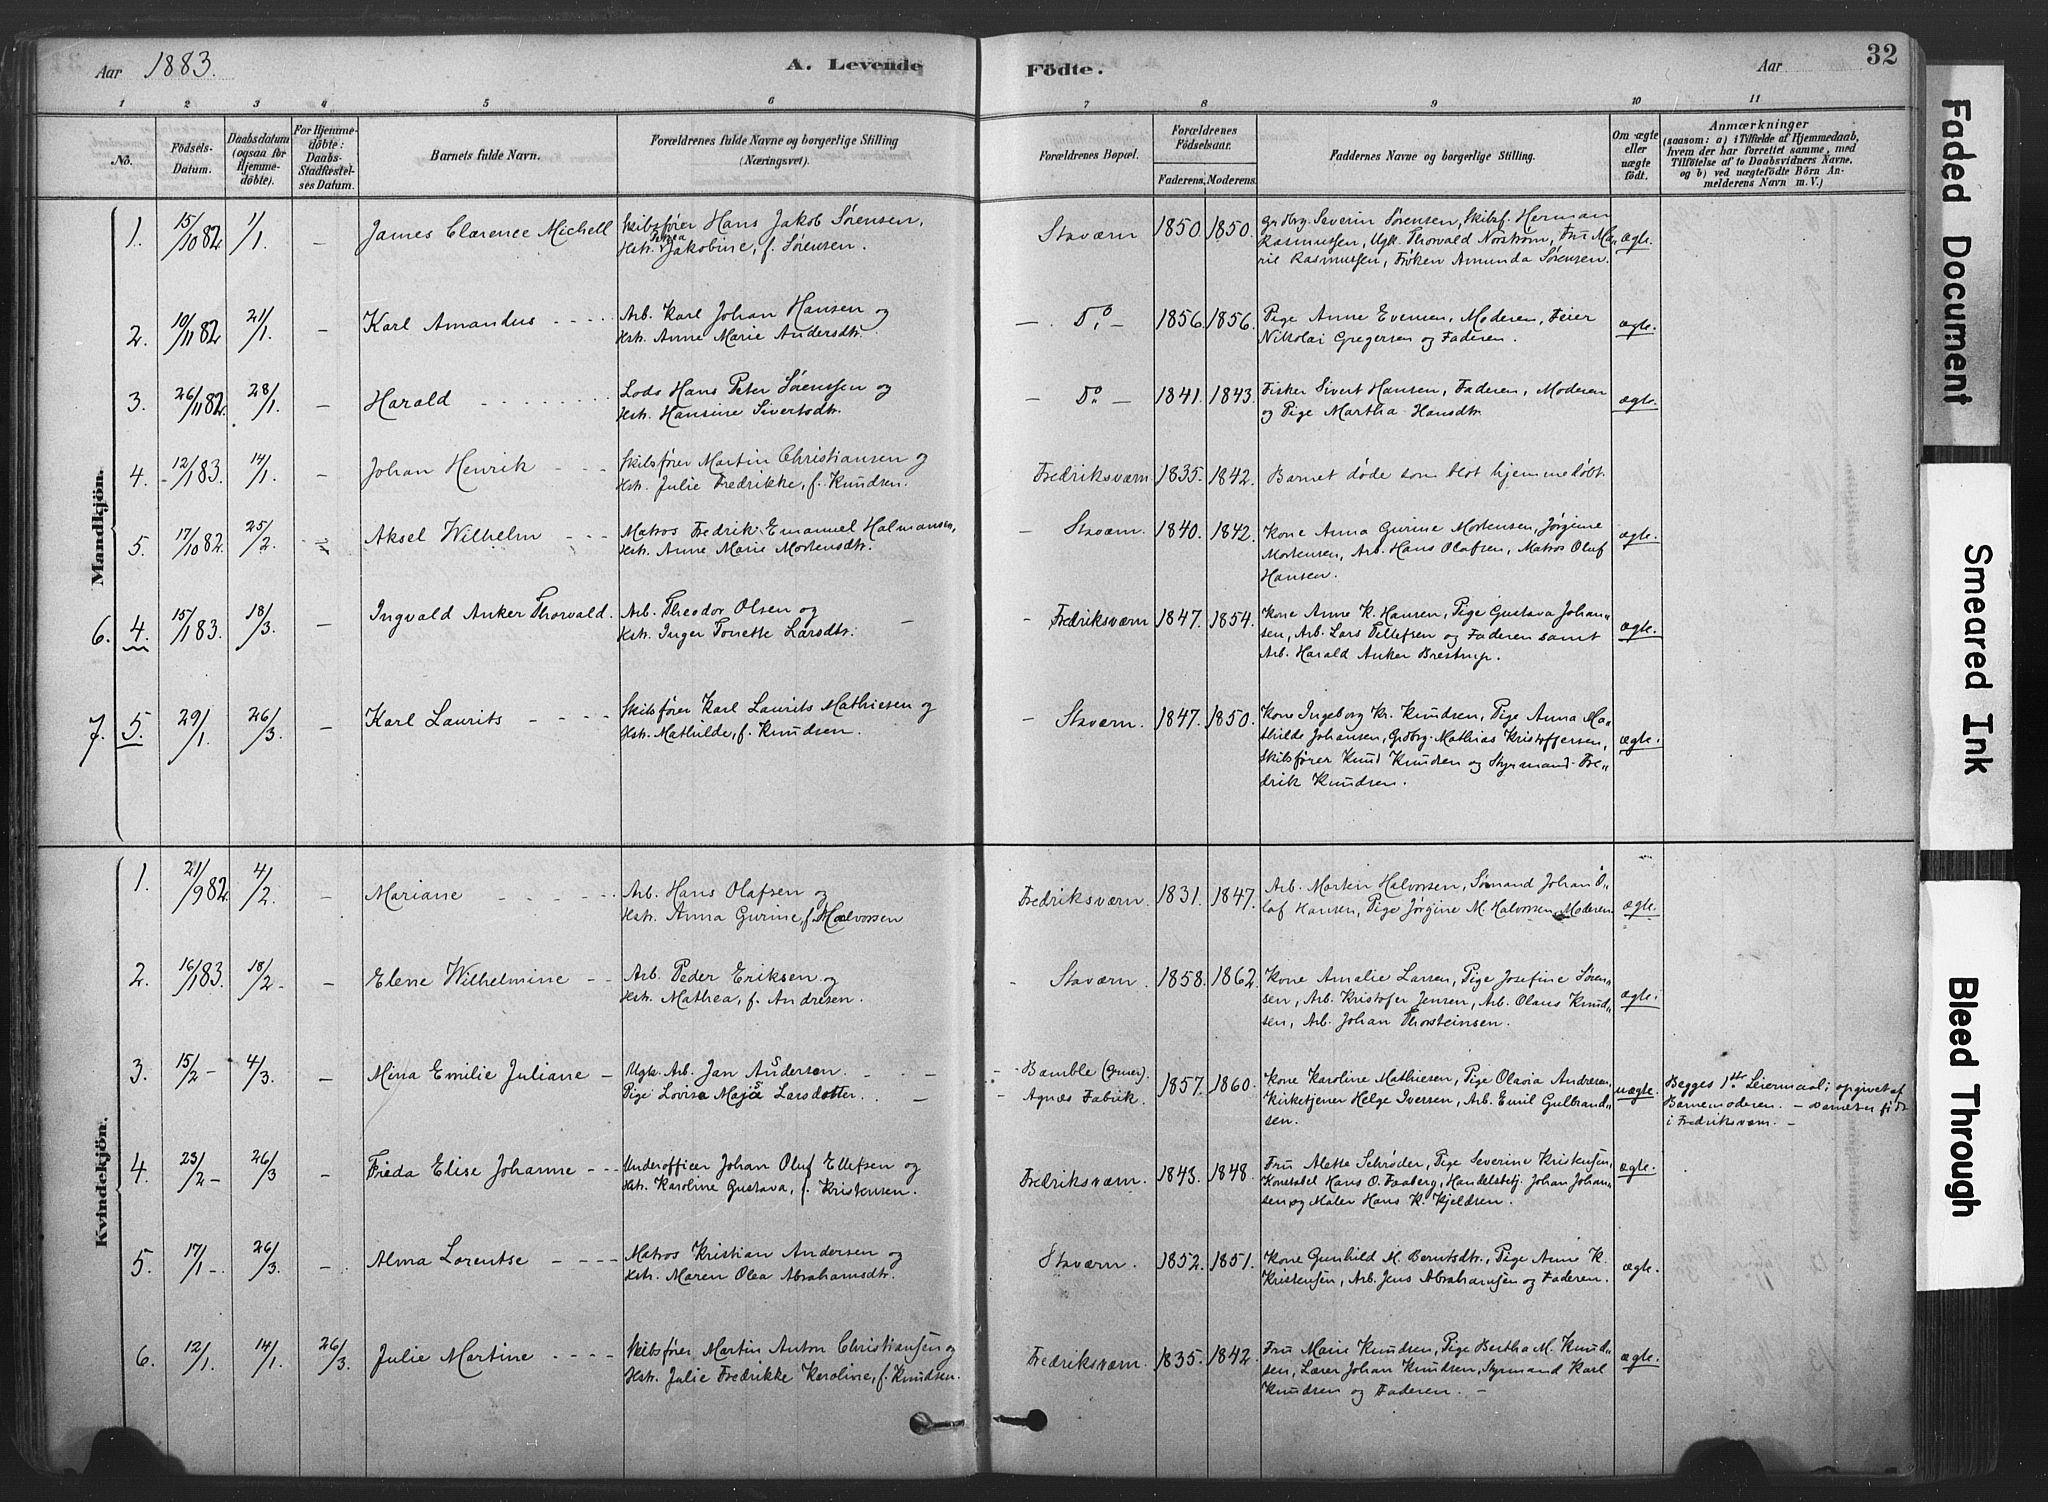 Aar 1883. A. Levende Födte. Aar 32
1 2 3 4 5 6 7 8 9 10 11
No.
Födsels-
Datum.
Daabsdatum
(ogsaa for
Hjemme-
döbte).
For Hjemme-
döbte:
Daabs-
Stadfæstel-
ses Datum.
Barnets fulde Navn.
Forældrenes fulde Navne og borgerlige Stilling
(Næringsvei).
Forældrenes Bopæl.
Forældrenes
Födselsaar.
Faderens. Moderens.
Faddernes Navne og borgerlige Stilling.
Om ægte
eller
uægte
födt.
Anmærkninger
(saasom: a) i Tilfælde af Hjemmedaab,
hvem der har forrettet samme, med
Tilföielse af to Daabsvidners Navne,
og b) ved uægtefödte Börn An-
melderens Navn m. V.)
Mandkjön.
1. 15/10 82 1/1. – James Clarence Michell Skibsfører Hans Jakob Sørensen, Staværn 1850. 1850. Grdbrg. Severin Sørensen, Skibsf. Herman
Hstr. Jakobine, f. Sørensen. Rasmussen, Ugk. Thorvald Norstrøm, Fru Ma„ ægte.
rie Rasmussen, Frøken Amunda Sørensen.
2. 10/11 82 21/1. – Karl Amandus - - - - Arb. Karl Johan Hansen og –. Do – 1856. 1856. Pige Anne Evensen, Moderen, Feier ægte.
Hstr. Anne Marie Andersdtr. Nikolai Gregersen og Faderen.
3. 26/11 82. 28/1. – Harald - - - - - - - Lods Hans Peter Sørenssen og – Do – 1841. 1843. Fisker Sivert Hansen, Faderen, Moderen ægte.
Hstr. Hansine Sivertsdtr. og Pige Martha Hansdtr.
4. 12/1 83. 14/1. – Johan Henrik - - - Skibsfører Martin Christiansen og Fredriksværn 1835. 1842. Barnet døde som blot hjemmedøbt.
Hstr. Julie Fredrikke, f. Knudsen.
5. 17/10 82. 25/2. Aksel Wilhelm - - - Matros Fredrik Emanuel Halmansen, – Staværn. 1840. 1842. Kone Anna Gurine Mortensen, Jørgine ægte.
Hstr. Anne Marie Mortensdtr. Mortensen, Arb. Hans Olafsen, Matros Oluf
Hansen.
6. 4. 15/1 83. 18/3. – Ingvald Anker Thorvald. Arb. Theodor Olsen og – – Fredriksværn 1847. 1854. Kone Anne K. Hansen, Pige Gustava Johan„
Hstr. Inger Tonette Larsdtr. sen, Arb. Lars Tellefsen og Faderen samt ægte.
Arb. Harald Anker Brestrup.
7. 5. 29/1. 26/3. – Karl Laurits - - - - Skibsfører Karl Laurits Mathiesen og – Staværn. 1847. 1850. Kone Ingeborg Kr. Knudsen, Pige Anna Ma„
Hstr. Mathilde, f. Knudsen. thilde Johansen, Grdbrg. Mathias Kristoffersen, ægte.
Skibsfører Knud Knudsen og Styrmand Fre„
drik Knudsen.
Kvindekjön.
1. 21/9 82. 4/2. – Mariane - - - - - - Arb. Hans Olafsen og Fredriksværn. 1831. 1847. Arb. Martin Halvorsen, Sømand Johan O„
Hstr. Anna Gurine, f. Halvorsen laf Hansen, Pige Jørgine M. Halvorsen, Moderen. ægte.
2. 16/1 83. 18/2. – Elene Wilhelmine - - Arb. Peder Eriksen og – Staværn. 1858. 1862. Kone Amalie Larsen, Pige Josefine Søren„
Hstr. Mathea, f. Andresen. sen, Arb. Kristofer Jensen, Arb. Olaus Knud„ ægte.
sen, Arb. Johan Thorsteinsen.
3. 15/2 – 4/3. – Mina Emilie Juliane – Ugk. Arb. Jan Anderson. - - - Bamble 1857. 1860. Kone Karoline Mathiesen, Pige Olavia Andresen, uægte. Begges 1ste Leiermaal; opgivet af
Pige Lovisa Maja Larsdotter. – – Agnes Fabrik. Kirketjener Helge Iversen, Arb. Emil Gulbrand„ Barnemoderen. – Barnet er født
sen. i Fredriksværn. –
4. 23/2 – 26/3 – Frida Elise Johanne - - Underofficer Johan Oluf Ellefsen og Fredriksværn. 1843. 1848. Fru Alette Schrøder, Pige Severine Kristensen, ægte.
Hstr. Karoline Gustava, f. Kristensen. Konstabel Hans O. Faaberg, Handelsbetj. Johan Johan„
sen og Maler Hans K. Kjeldsen.
5. 17/1 – 26/3. – Alma Lorentse - - - - Matros Kristian Andersen og Staværn. 1852. 1851. Kone Gunhild M. Berntsdtr., Pige Anne K. ægte.
Hstr. Maren Olea Abrahamsdtr. Kristensen, Arb. Jens Abrahamsen og Faderen.
6. 12/1. 14/1. 26/3. Julie Martine - - - - Skibsfører Martin Anton Christiansen og Fredriksværn. 1835. 1842. Fru Marie Knudsen, Pige Bertha M. Knud„ ægte.
Hstr. Julie Fredrikke Karoline, f. Knudsen. sen, Lærer Johan Knudsen, Styrmand Karl
Knudsen og Faderen. –
Faded Document
Smeared Ink
Bleed Through